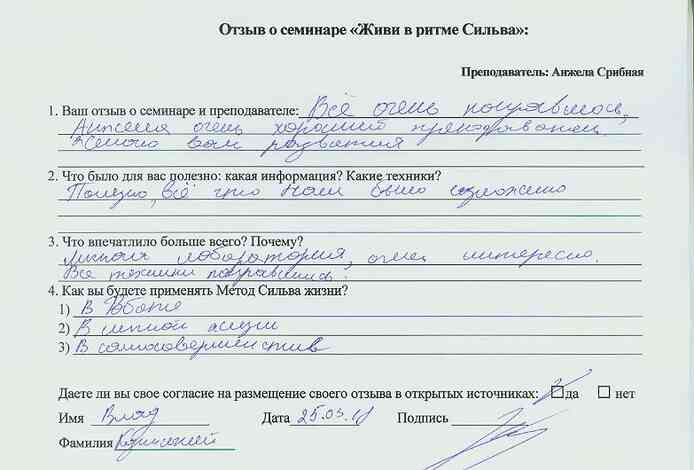 Отзыв о семинаре «Живи в ритме Сильва»:
Преподаватель: Анжела Срибная
1. Ваш отзыв о семинаре и преподавателе: Всё очень понравилось,
Анжела очень хороший преподаватель.
Желаю вам развития
2. Что было для вас полезно: какая информация? Какие техники?
Полезно, всё что нам было изложено
3. Что впечатлило больше всего? Почему?
лаборатория, очень интересно.
Все техники понравились.
4. Как вы будете применять Метод Сильва жизни?
1) В Работе
2) В личной жизни
3) В самосовершенстве
Даете ли вы свое согласие на размещение своего отзыва в открытых источниках: да нет
Имя Влад Дата 25.03. Подпись
Фамилия